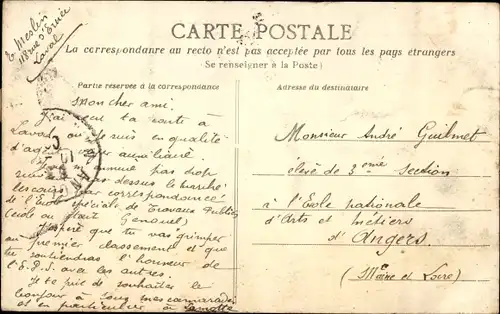 E. Meslin
18 rue d'Ernée
Laval
CARTE POSTALE
La correspondanre au recto n'est pas acceptée par tous les pays étrangers
Se renseigner à la Poste)
Partie réservée à la correspondance
Adresse du destinataire
Mon cher ami.
J'ai reçu ta carte à
Laval, où je suis en qualité
d'agent voyer auxiliaire.
pas trop
suis dessus le marché
les cours par correspondance
de l'École spéciale de Travaux Publics
(école du haut
J'espère que tu vas grimper
au premier classement et que
tu soutiendras l'honneur de
l'E.P.S. avec les autres.
Je te prie de souhaiter le
bonjour à tous mes camarades
et en particulier à Lamotte
Monsieur André Guilmet
élève de 3ème section
à l'École nationale
d'Arts et Métiers
d'Angers.
(Maine et Loire)